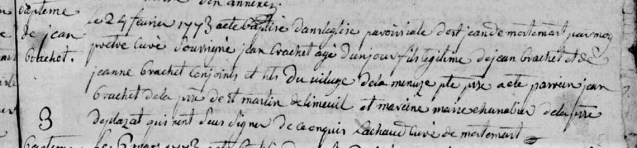 Bapteme
de jean
brachet.
le 24 fevrier 1773 a ete baptisé dans l'eglise paroissiale de st jean de mortemart par moy
pretre curé soussigné jean brachet agé d'un jour fils legitime de jean brachet et de
jeanne brachet conjoints et hts du vilage de la menuse pte psse a ete parrein jean
brachet de la psse de st martin de limeuil et mareine marie chanalier de la psse
de plazat qui n'ont sceu signer de ce enquis Lachaud curé de mortemart
3